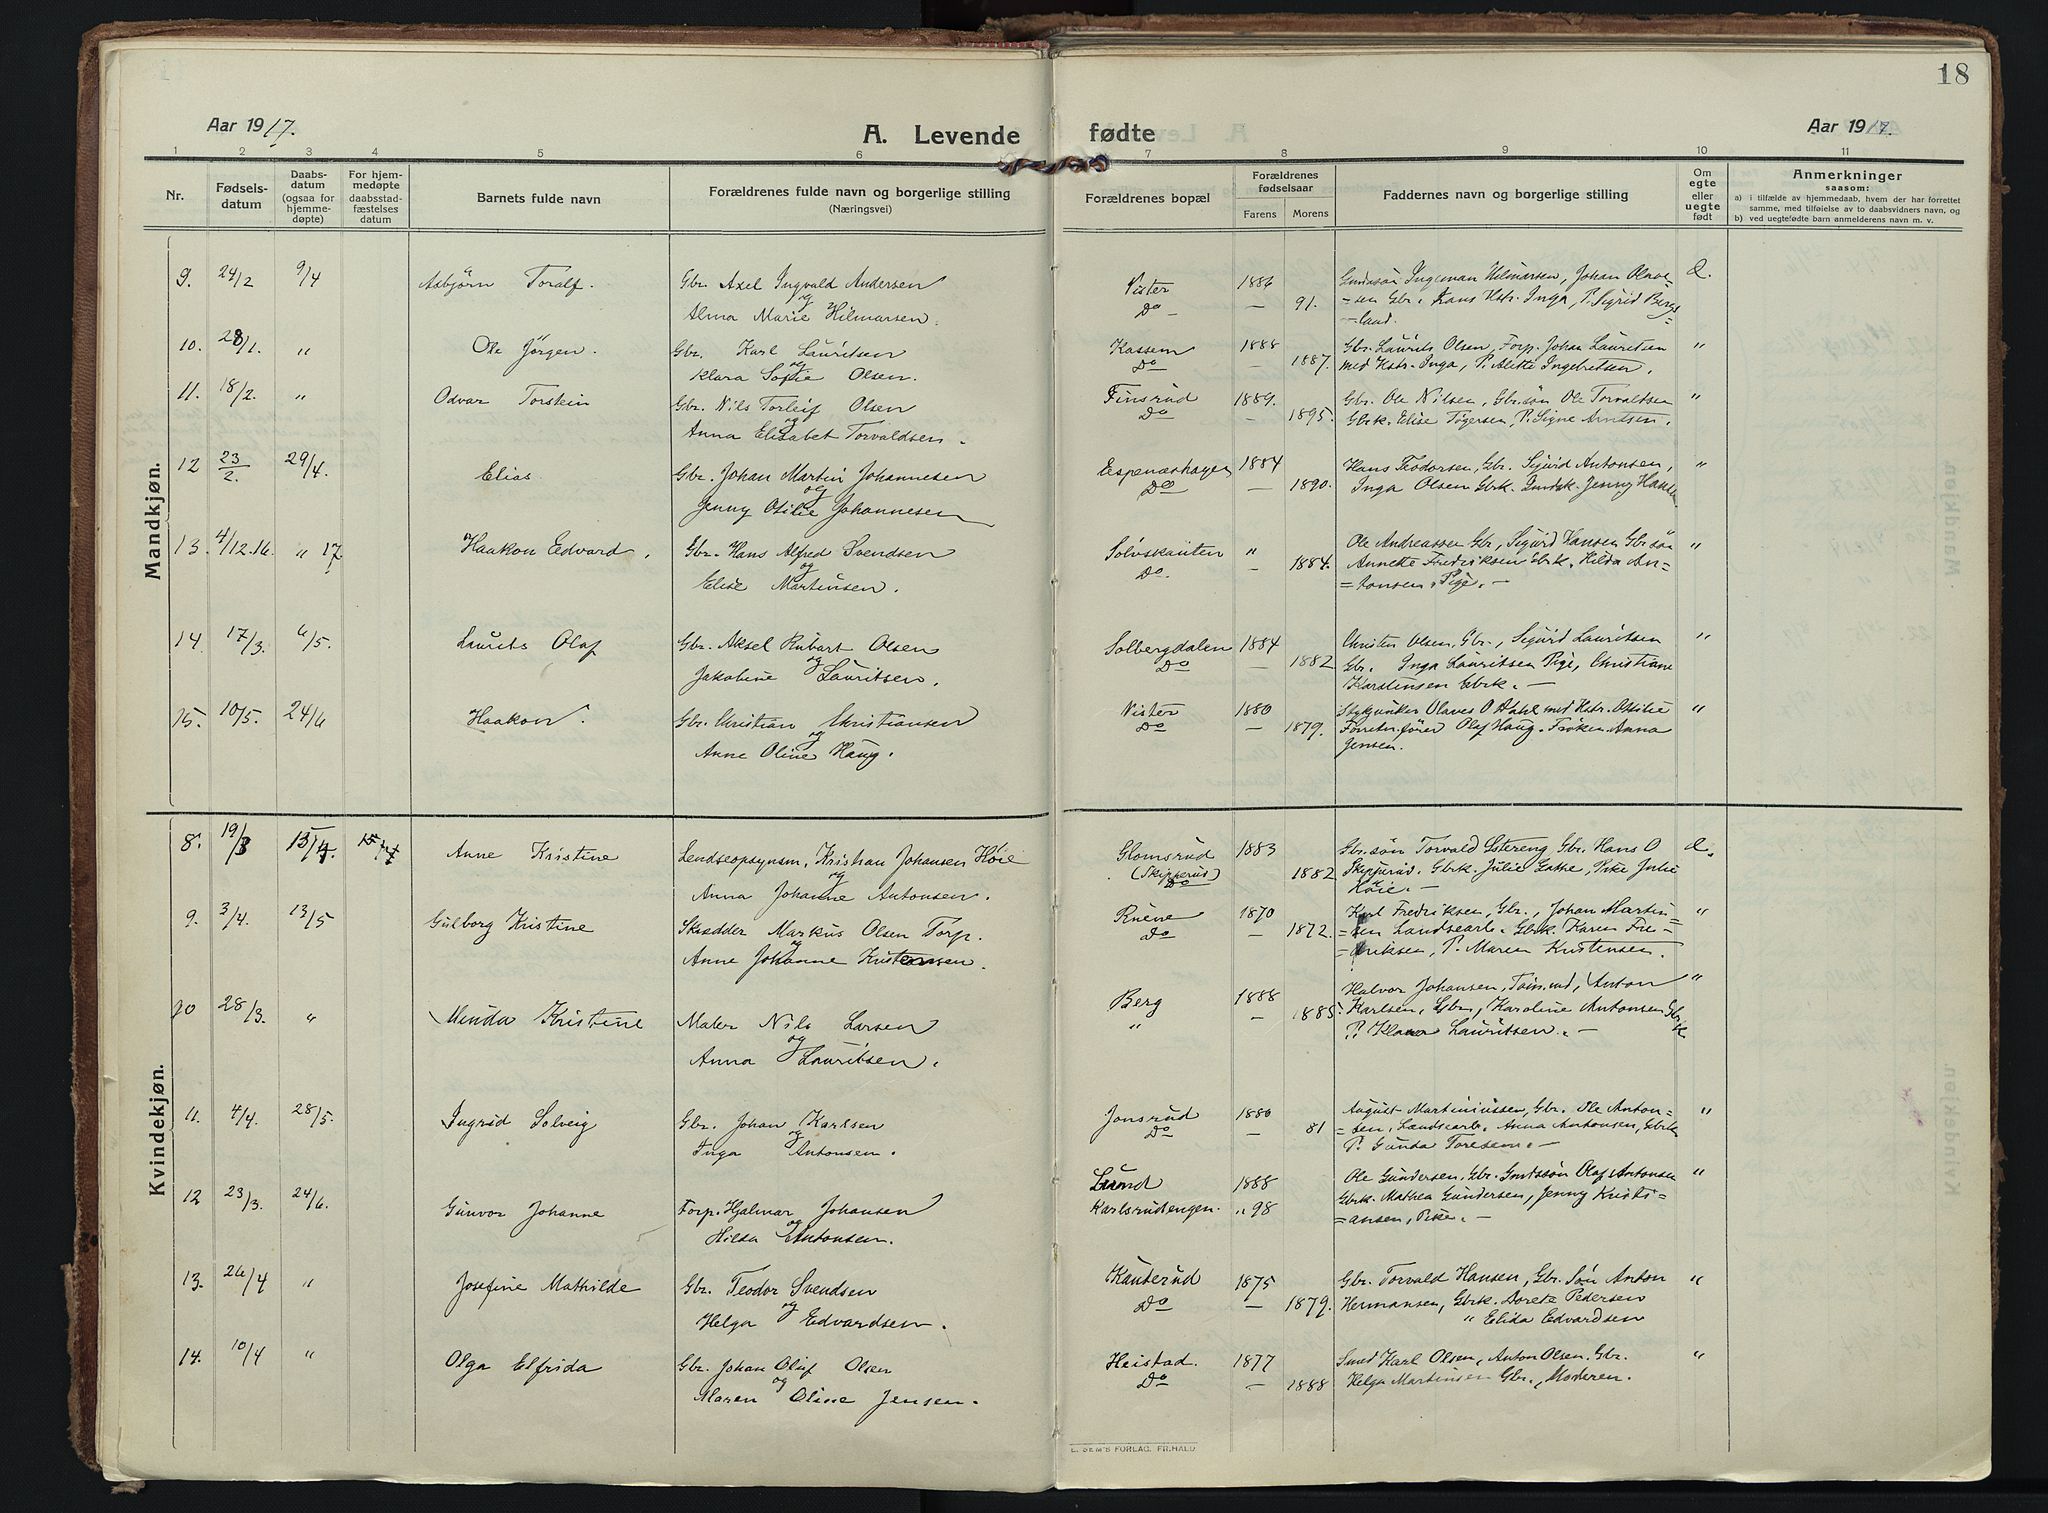 18
Aar 1917.
A. Levende
fødte
Aar 1917.
1 2 3 4 5 6 7 8 9 10 11
Nr.
Fødsels-
datum
Daabs-
datum
(ogsaa for
hjemme-
døpte)
For hjem-
medøpte
daabsstad-
fæstelses
datum
Barnets fulde navn
Forældrenes fulde navn og borgerlige stilling
(Næringsvei)
Forældrenes bopæl
Forældrenes
fødselsaar
Farens Morens
Faddernes navn og borgerlige stilling
Om
egte
eller
uegte
født
Anmerkninger
saasom:
a) i tilfælde av hjemmedaab, hvem der har forrettet
samme, med tilføielse av to daabsvidners navn, og
b) ved uegtefødte barn anmelderens navn m. v.
Mandkjøn.
9. 24/2 9/4 Asbjørn Toralf. Gbr. Axel Ingvald Andersen Vister 1886 Gaardssøn Ingeman Hilmarsen, Johan Olave
og Do — 91. =sen Gbr., Hans Hstr. Inga, P. Sigrid Bergs
Alma Marie Hilmarsen. =land.
10. 28/1. " Ole Jørgen. Gbr. Karl Lauritsen Kassem 1888 Gbr. Laurits Olsen, Forp. Johan Lauritsen "
og Do — 1887. med Hstr. Inga, P. Alette Ingebretsen.
Klara Sofie Olsen.
11. 18/2. " Odvar Torstein Gbr. Nils Torleif Olsen Finsrud 1889. Gbr. Ole Nilsen, Gbr.søn Ole Torvaldsen "
og Do — 1895. Gbrk. Elise Tøgersen, P. Signe Arntsen.
Anna Elisabet Torvaldsen.
12 23/2. 29/4. Elias Gbr. Johan Martin Johannesen Espenæshagen 1884 Hans Teodorsen, Gbr. Sigurd Antonsen, "
og Do — 1890. Inga Olsen Gbrk. Jenny Hansen
Jenny Otilie Johannesen
13. 4/12.16. " 17 Haakon Edvard. Gbr. Hans Alfred Svendsen Sølvskauten " Ole Andreassen Gbr, Sigurd Hansen Gbrsøn "
og Do. — 1884. Annette Fredriksen Gbrk. Hilda An=
Elise Martinsen. =tonsen, Pige. —
14. 17/3. 6/5. Laurits Olaf Gbr. Aksel Rubart Olsen Solbergdalen 1884 Christen Olsen, Gbr., Sigurd Lauritsen "
og Do — 1882 Gbr. Inga Lauritsen Pige, Christiane
Jakobine Lauritsen. Karstensen Gbrk. —
15. 10/5. 24/6 Haakon. Gbr. Christian Christiansen Vister 1880 Olaves O Dahl med Hstr. Otilie "
og Do — 1879. Forretn.fører Olaf Haug. Frøken Anna
Anne Oline Haug. Jensen.
Kvindekjøn.
8. 19/3 15/4 Anne Kristine Lendseopsynsm. Kristian Johansen Høie Glomsrud 1883 Gbr.søn Torvald Østereng Gbr. Hans O
og (Skipperud) 1882 Skipperud. Gbrk. Julie Gathe, Pike Julie
Anna Johanne Antonsen. Do Høie. —
9. 3/4. 13/5 Gulborg Kristine Skrædder Markus Olsen Torp. Ruene 1870 Karl Fredriksen, Gbr., Johan Martin= "
og Do — 1872. =sen Landsearb. Gbrk. Karen Fre=
Anne Johanne Kristensen. =driksen, P. Maren Kristensen.
10 28/3. " Minda Kristine Maler Nils Larsen Berg 1888 Halvor Johansen, Tømmd, Anton "
og " — 1885. Karlsen, Gbr, Karoline Antonsen Gbrk
Anna Lauritsen. P. Klara Lauritsen. —
11. 4/4. 28/5. Ingrid Solveig Gbr. Johan Karlsen Jonsrud 1880 August Martiniussen, Gbr. Ole Anton= "
og Do — 81 =sen, Landsearb. Anna Antonsen, Gbrk
Inga Antonsen. P. Gunda Toresen. —
12 23/3. 24/6. Gunvor Johanne Forp. Hjalmar Johansen Lund 1888 Ole Gundersen, Gbr. Olaf Antonsen "
og Karlsrudengen. " 98 Gbrk. Mathea Gundersen, Jenny Kristi=
Hilda Antonsen. =ansen, Pike. —
13. 26/4 " Josefine Mathilde Gbr. Teodor Svendsen Kauterud 1875 Gbr. Torvald Hansen, Gbr. Søn Anton "
og Do — 1879. Hermansen, Gbrk. Dorete Pedersen
Helga Edvardsen. " Elida Edvardsen
14. 10/4 " Olga Elfrida Gbr. Johan Oluf Olsen Heistad. 1877 Smed Karl Olsen, Anton Olsen. Gbr. "
og Do — 1888 Helga Martinsen Gbr., Moderen.
Maren Oline Jensen.
E. SEM'S FORLAG, FR.HALD